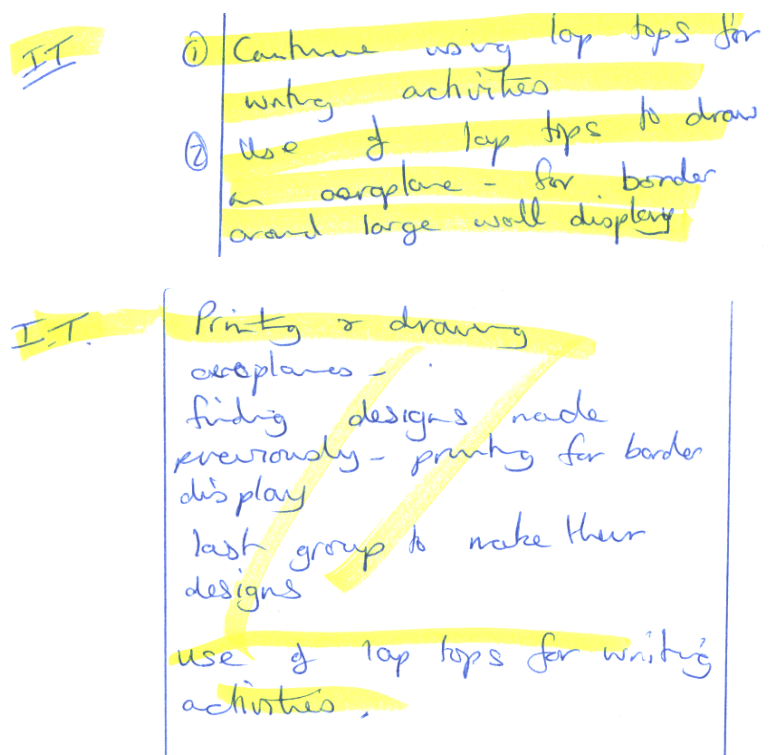 IT ① Continue using lap tops for
writing activities
② Use of lap tops to draw
an aeroplane - for border
around large wall display
I.T. Printing & drawing
aeroplanes -
finding designs made
previously - printing for border
display
last group to make their
designs
use of lap tops for writing
activities.